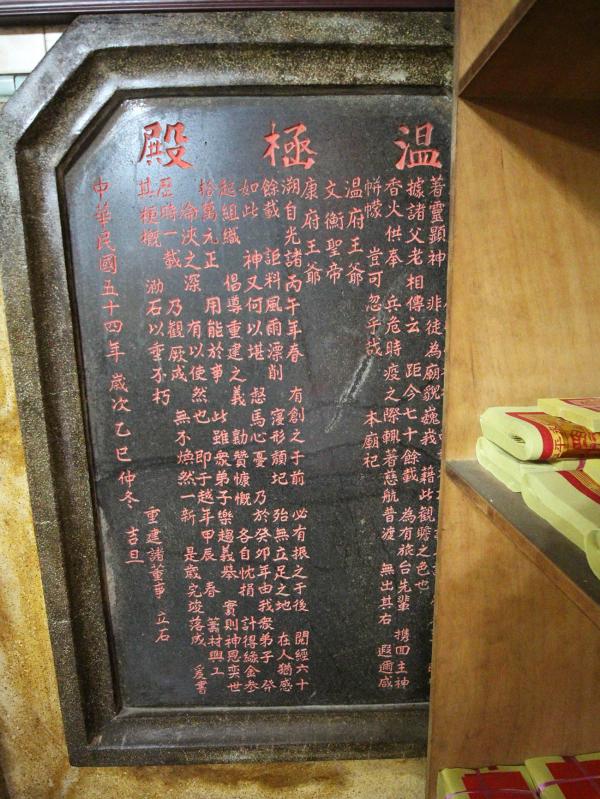 溫極殿
著靈顯神　非徒為廟貌巍峩　藉此觀瞻之色也
據諸父老相傳云　距今七十餘載　為有旅台先輩　携四主神
香火供奉　兵危時疫之際輒著慈航普渡　無出其右　遐邇感
帡幪　豈可忽乎哉　本廟祀
溫府王爺
文衡聖帝
康府王爺
溯自光諸丙午年春　有創之于前　必有振之于後　閱經六十
餘載　詎料風雨漂削　寖形頹圮　殆無立足之地　在人猶感
如此　神又何以堪　惄焉心憂　乃於癸卯年由我衆弟子　發
起組織　倡導重建之義　勷贊慷慨　各自忱捐　計得緣金參
拾萬元正　用能於事　此雖衆弟子樂趨義舉　實則神恩奕世
淪浹之深　有以使然也　即于越年甲辰　春　籌材興工
歷時一載　乃觀厥成　無不煥然一新　是歲完竣落成　爰書
其梗概　泐石以垂不朽
中華民國五十四年歲次乙巳仲冬　吉旦
重建諸董事　立石